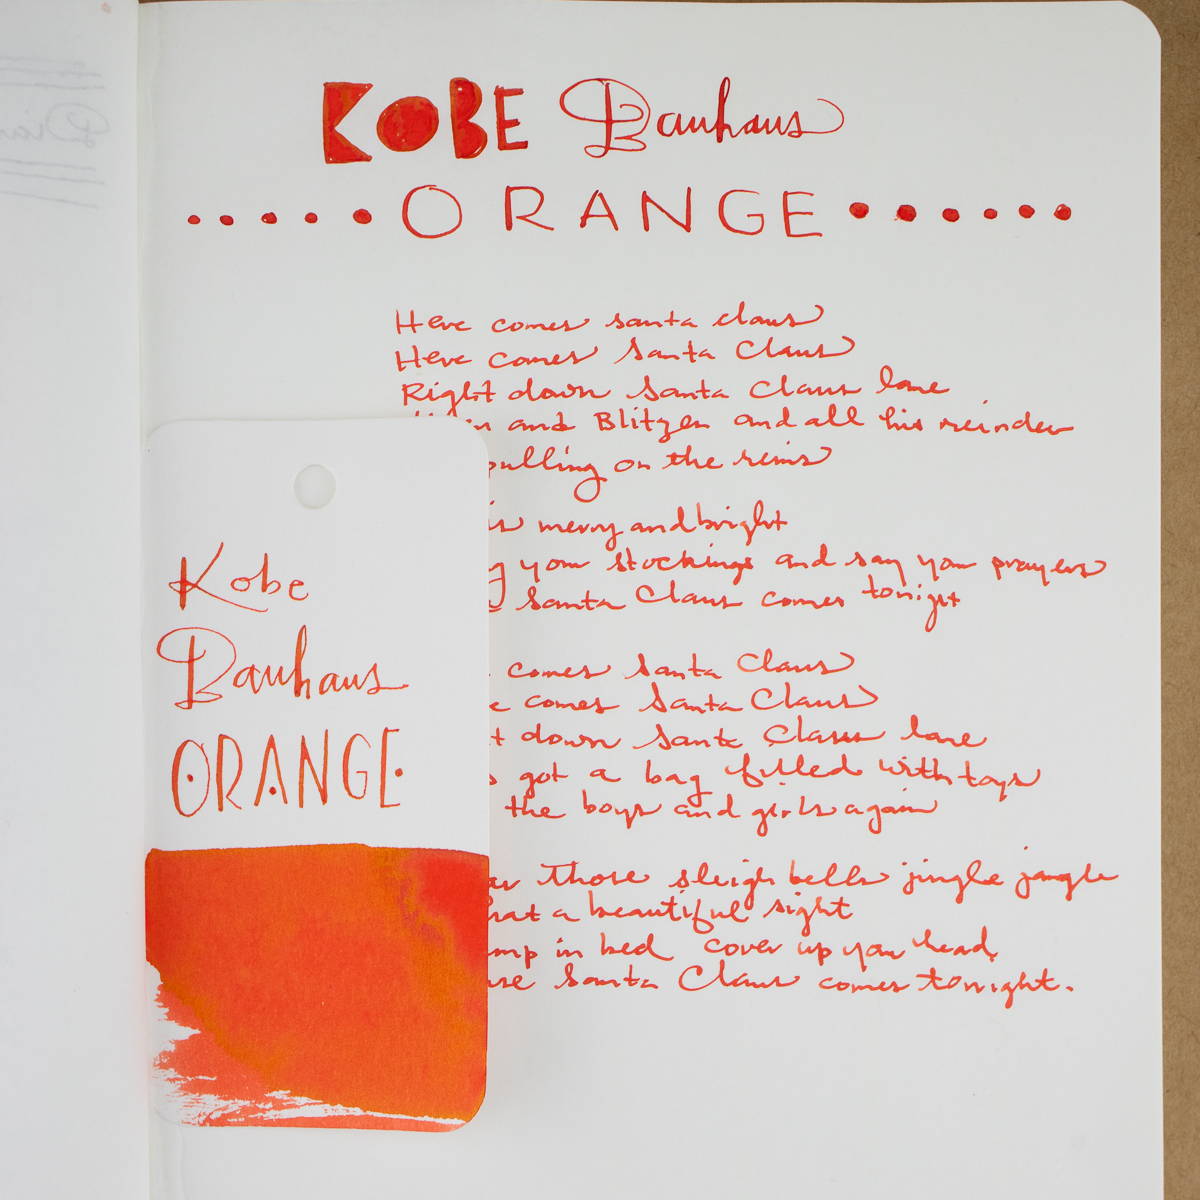 KOBE Bauhaus
ORANGE
Here comes santa claus
Here comes Santa Claus
Right down Santa Claus lane
and Blitzen and all his reinder
pulling on the reins
is merry and bright
your stockings and say your prayers
Santa Claus comes tonight
comes Santa Claus
comes Santa Claus
down Santa Claus lane
got a bag filled with toys
the boys and girls again
those sleigh bells jingle jangle
hat a beautiful sight
mp in bed cover up your head,
se Santa Claus comes tonight.
Kobe
Bauhaus
ORANGE